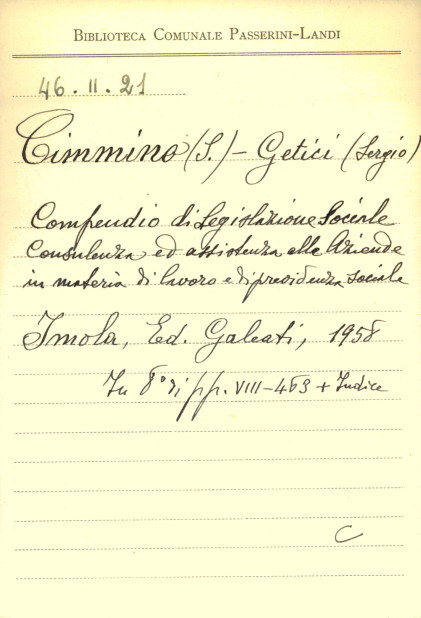 BIBLIOTECA COMUNALE PASSERINI-LANDI
46.II.21
Cimmino (S.) - Getici (Sergio)
Compendio di Legislazione Sociale
Consulenza ed assistenza alle Aziende
in materia di lavoro e di previdenza sociale
Imola, Ed. Galeati, 1958
In 8° di pp. VIII-463 + Indice
C